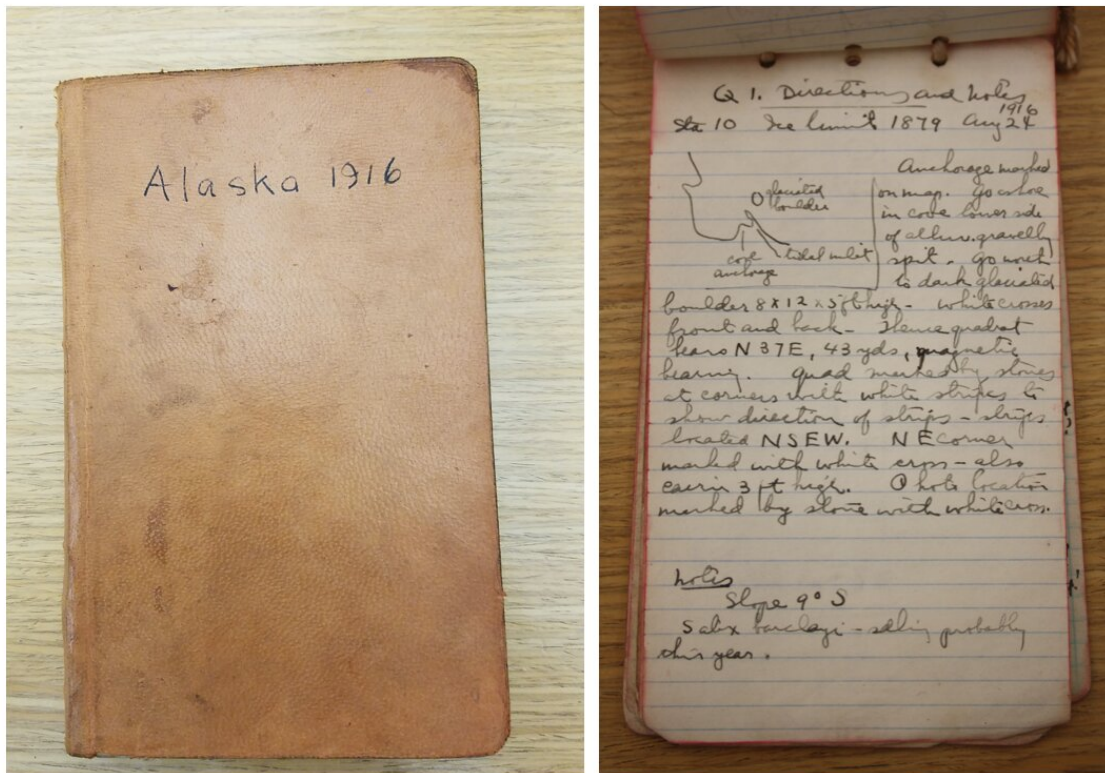 Alaska 1916
Q 1. Directions and notes
1916
Sta 10 Ice limit 1879 Aug 24
Anchorage marked
on map. Go ashore
in cove lower side
of alluv. gravelly
spit. Go north
to dark glaciated
glaciated
boulder
cove
anchorage
tidal inlet
boulder 8 x 12 x 5 ft high - white crosses
front and back - Thence quadrat
bears N 37 E, 43 yds, magnetic
bearing. Quad marked by stones
at corners with white stripes to
show direction of strips - strips
located NSEW. NE corner
marked with white cross - also
cairn 3 ft high. Photo location
marked by stone with white cross.
Notes
Slope 9° S
Salix barclayi - sdling probably
this year.